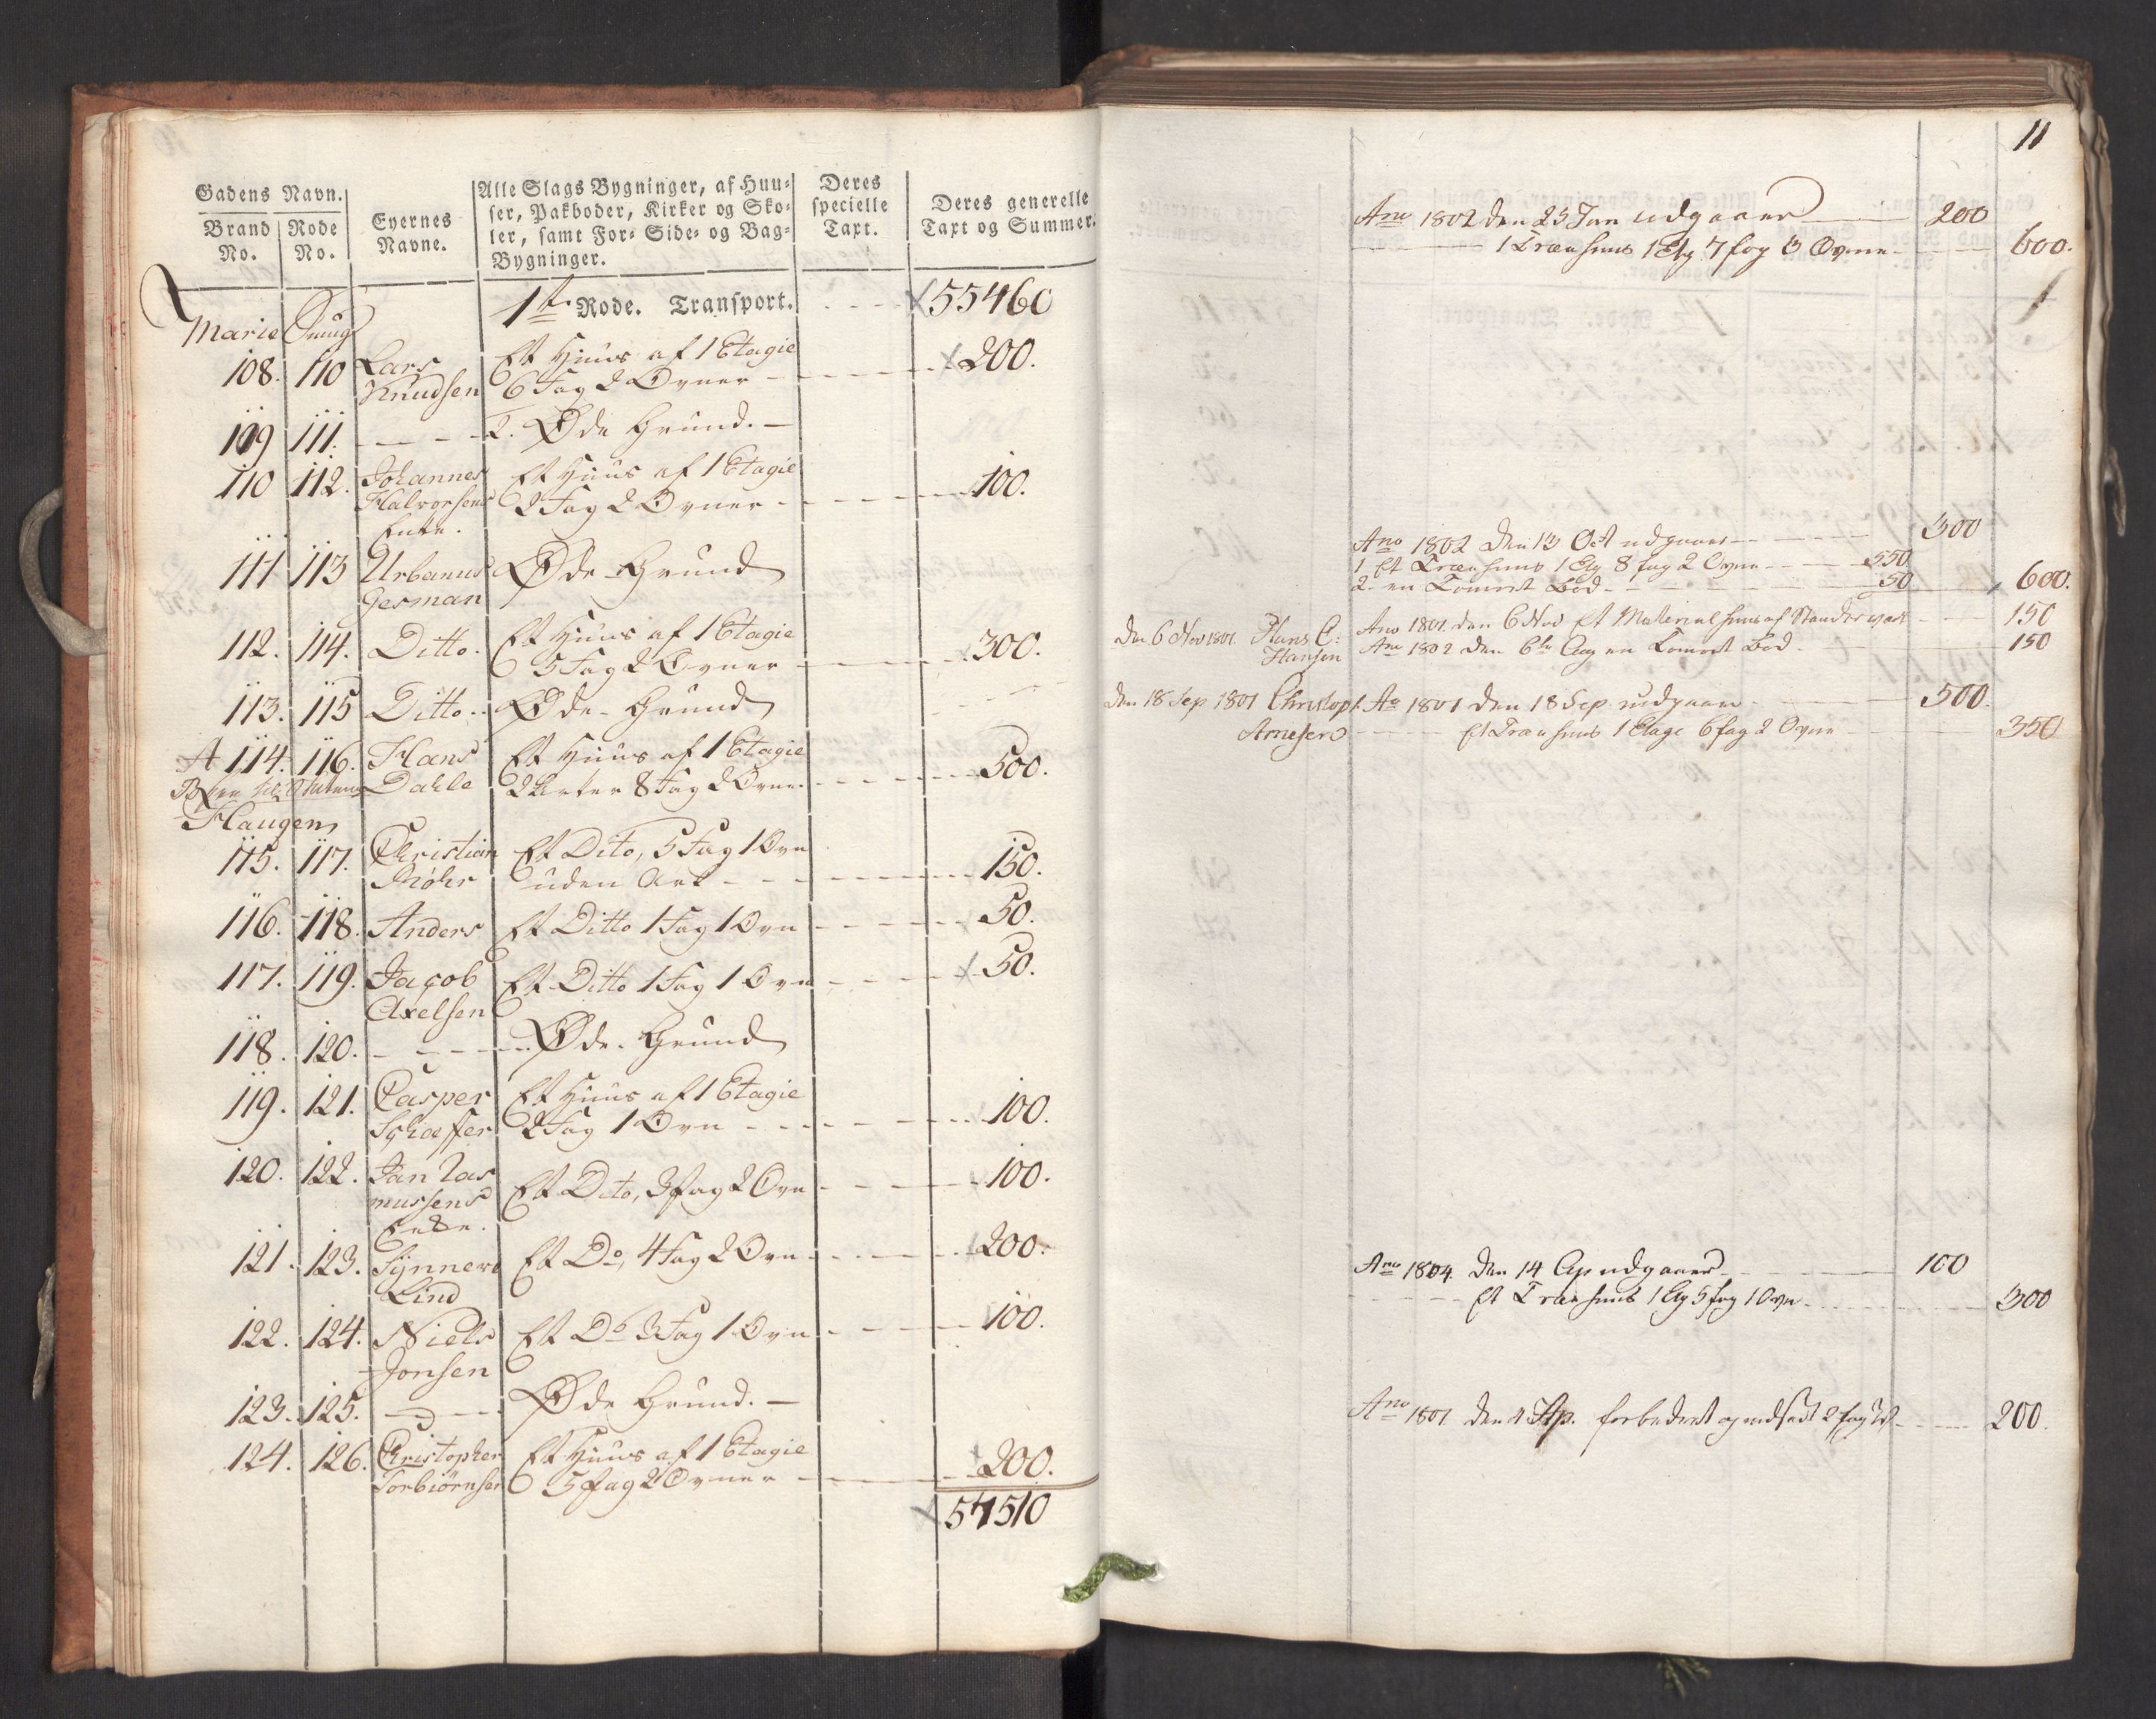 Gadens Navn.
Brand No. Rode No. Eyernes Navne. Alle Slags Bygninger, af Huu-
ser, Pakboder, Kirker og Sko-
ler, samt For- Side- og Bag-
Bygninger. Deres specielle Taxt. Deres generelle Taxt og Summer.
1ste Rode. Transport. 55460
Marie Smug
108. 110 Lars Et Huus af 1 Etagie
Knudsen 6 Fag 2 Ovner 200.
109 111. Øde Grund.
110 112. Johannes Et Huus af 1 Etagie
Halvorsens 2 Fag 2 Ovner 100.
Enke.
111 113 Urbanus Øde Grund
German
112. 114. Ditto. Et Huus af 1 Etagie
5 Fag 2 Ovner 300.
113. 115 Ditto Øde Grund
A 114. 116. Hans Et Huus af 1 Etagie
Dahle 8 Fag 2 Ovne 500.
Haugen
115. 117. Christian Et Dito, 5 Fag 1 Ovn
Møhr uden Ark 150.
116. 118. Anders Et Ditto 1 Fag 1 Ovn 50.
117. 119. Jacob Et Ditto 1 Fag 1 Ovn 50.
Axelsen
118. 120. Øde Grund
119. 121. Casper Et Huus af 1 Etagie
Schæffer 2 Fag 1 Ovn 100.
120. 122. Jan Ras
mussens Et Dito, 3 Fag 2 Ovn 100.
Enke.
121. 123. Synneve Et Do, 4 Fag 2 Ovn 200.
Lind
122. 124. Niels Et Do 3 Fag 1 Ovn 100.
Jonsen
123. 125. Øde Grund.
124. 126. Christopher Et Huus af 1 Etagie
Torbiørnsen 5 Fag 2 Ovner 200.
57510
11
Ano 1802 den 25 Jan udgaaer 200
1 Træehuus 1 Etg 7 fag 3 Ovne 600.
Ano 1802 den 13 Oct udgaaer 300
1 Et Træehuus 1 Etg 8 fag 2 Ovne 550
2 en Tømret Bod 50 600.
Den 6 Nov 1801. Hans C: Ano 1801 den 6 Nov Et Materialhuus af Standerværk 150
Hansen Ano 1802 den 6te Aug en Tømret Bod 150
Den 18 Sep 1801 Christoph. Ao 1801 den 18 Sep. udgaaer 500.
Arnesen Et Træehuus 1 Etage 6 fag 2 Ovne 350
Ano 1804. den 14 Ap udgaaer 100
Et Træehuus 1 Etg 5 fag 1 Ovn 300
Ano 1801 den Sep. forbedret og indsadt 2 fag 200.